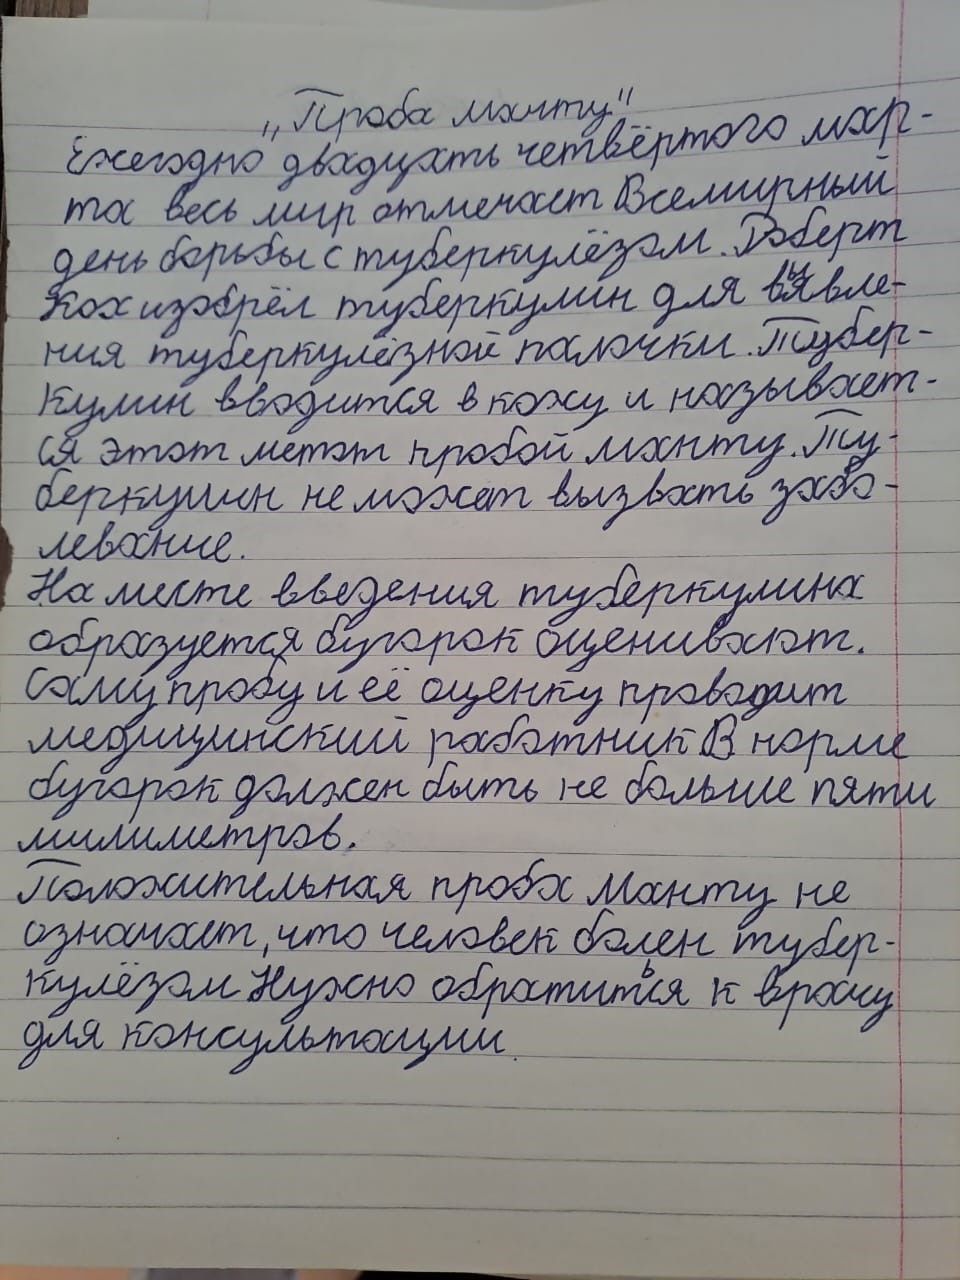 „Проба манту"
Ежегодно двадцать четвёртого мар-
та весь мир отмечает Всемирный
день борьбы с туберкулёзом. Роберт
Кох изобрёл туберкулин для выявле-
ния туберкулёзной палочки. Тубер-
кулин вводится в кожу и называет-
ся этот метот пробой манту. Ту-
беркулин не может вызвать забо-
левание.
На месте введения туберкулина
образуется бугорок оценивают.
Саму пробу и её оценку проводит
медицинский работник В норме
бугорок должен быть не больше пяти
милиметров.
Положительная проба Манту не
означает, что человек болен тубер-
кулёзом Нужно обратиться к врачу
для консультации.